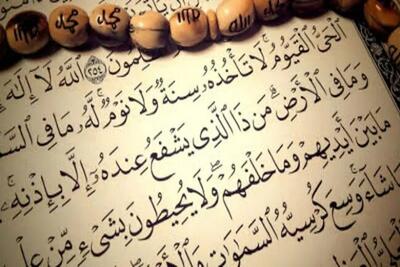 محمد
الله
محمد
الله
لمون ٢٥٤ ٱللَّهُ لَآ إِلَٰهَ
ٱلْحَىُّ ٱلْقَيُّومُ ۚ لَا تَأْخُذُهُۥ سِنَةٌ وَلَا نَوْمٌ ۚ لَّهُۥ مَا فِى ٱلسَّ
وَمَا فِى ٱلْأَرْضِ ۗ مَن ذَا ٱلَّذِى يَشْفَعُ عِندَهُۥٓ إِلَّا بِإِذْنِهِۦ ۚ
مَا بَيْنَ أَيْدِيهِمْ وَمَا خَلْفَهُمْ ۖ وَلَا يُحِيطُونَ بِشَىْءٍ مِّنْ عِلْ
شَآءَ ۚ وَسِعَ كُرْسِيُّهُ ٱلسَّمَٰوَٰتِ وَٱلْأَ